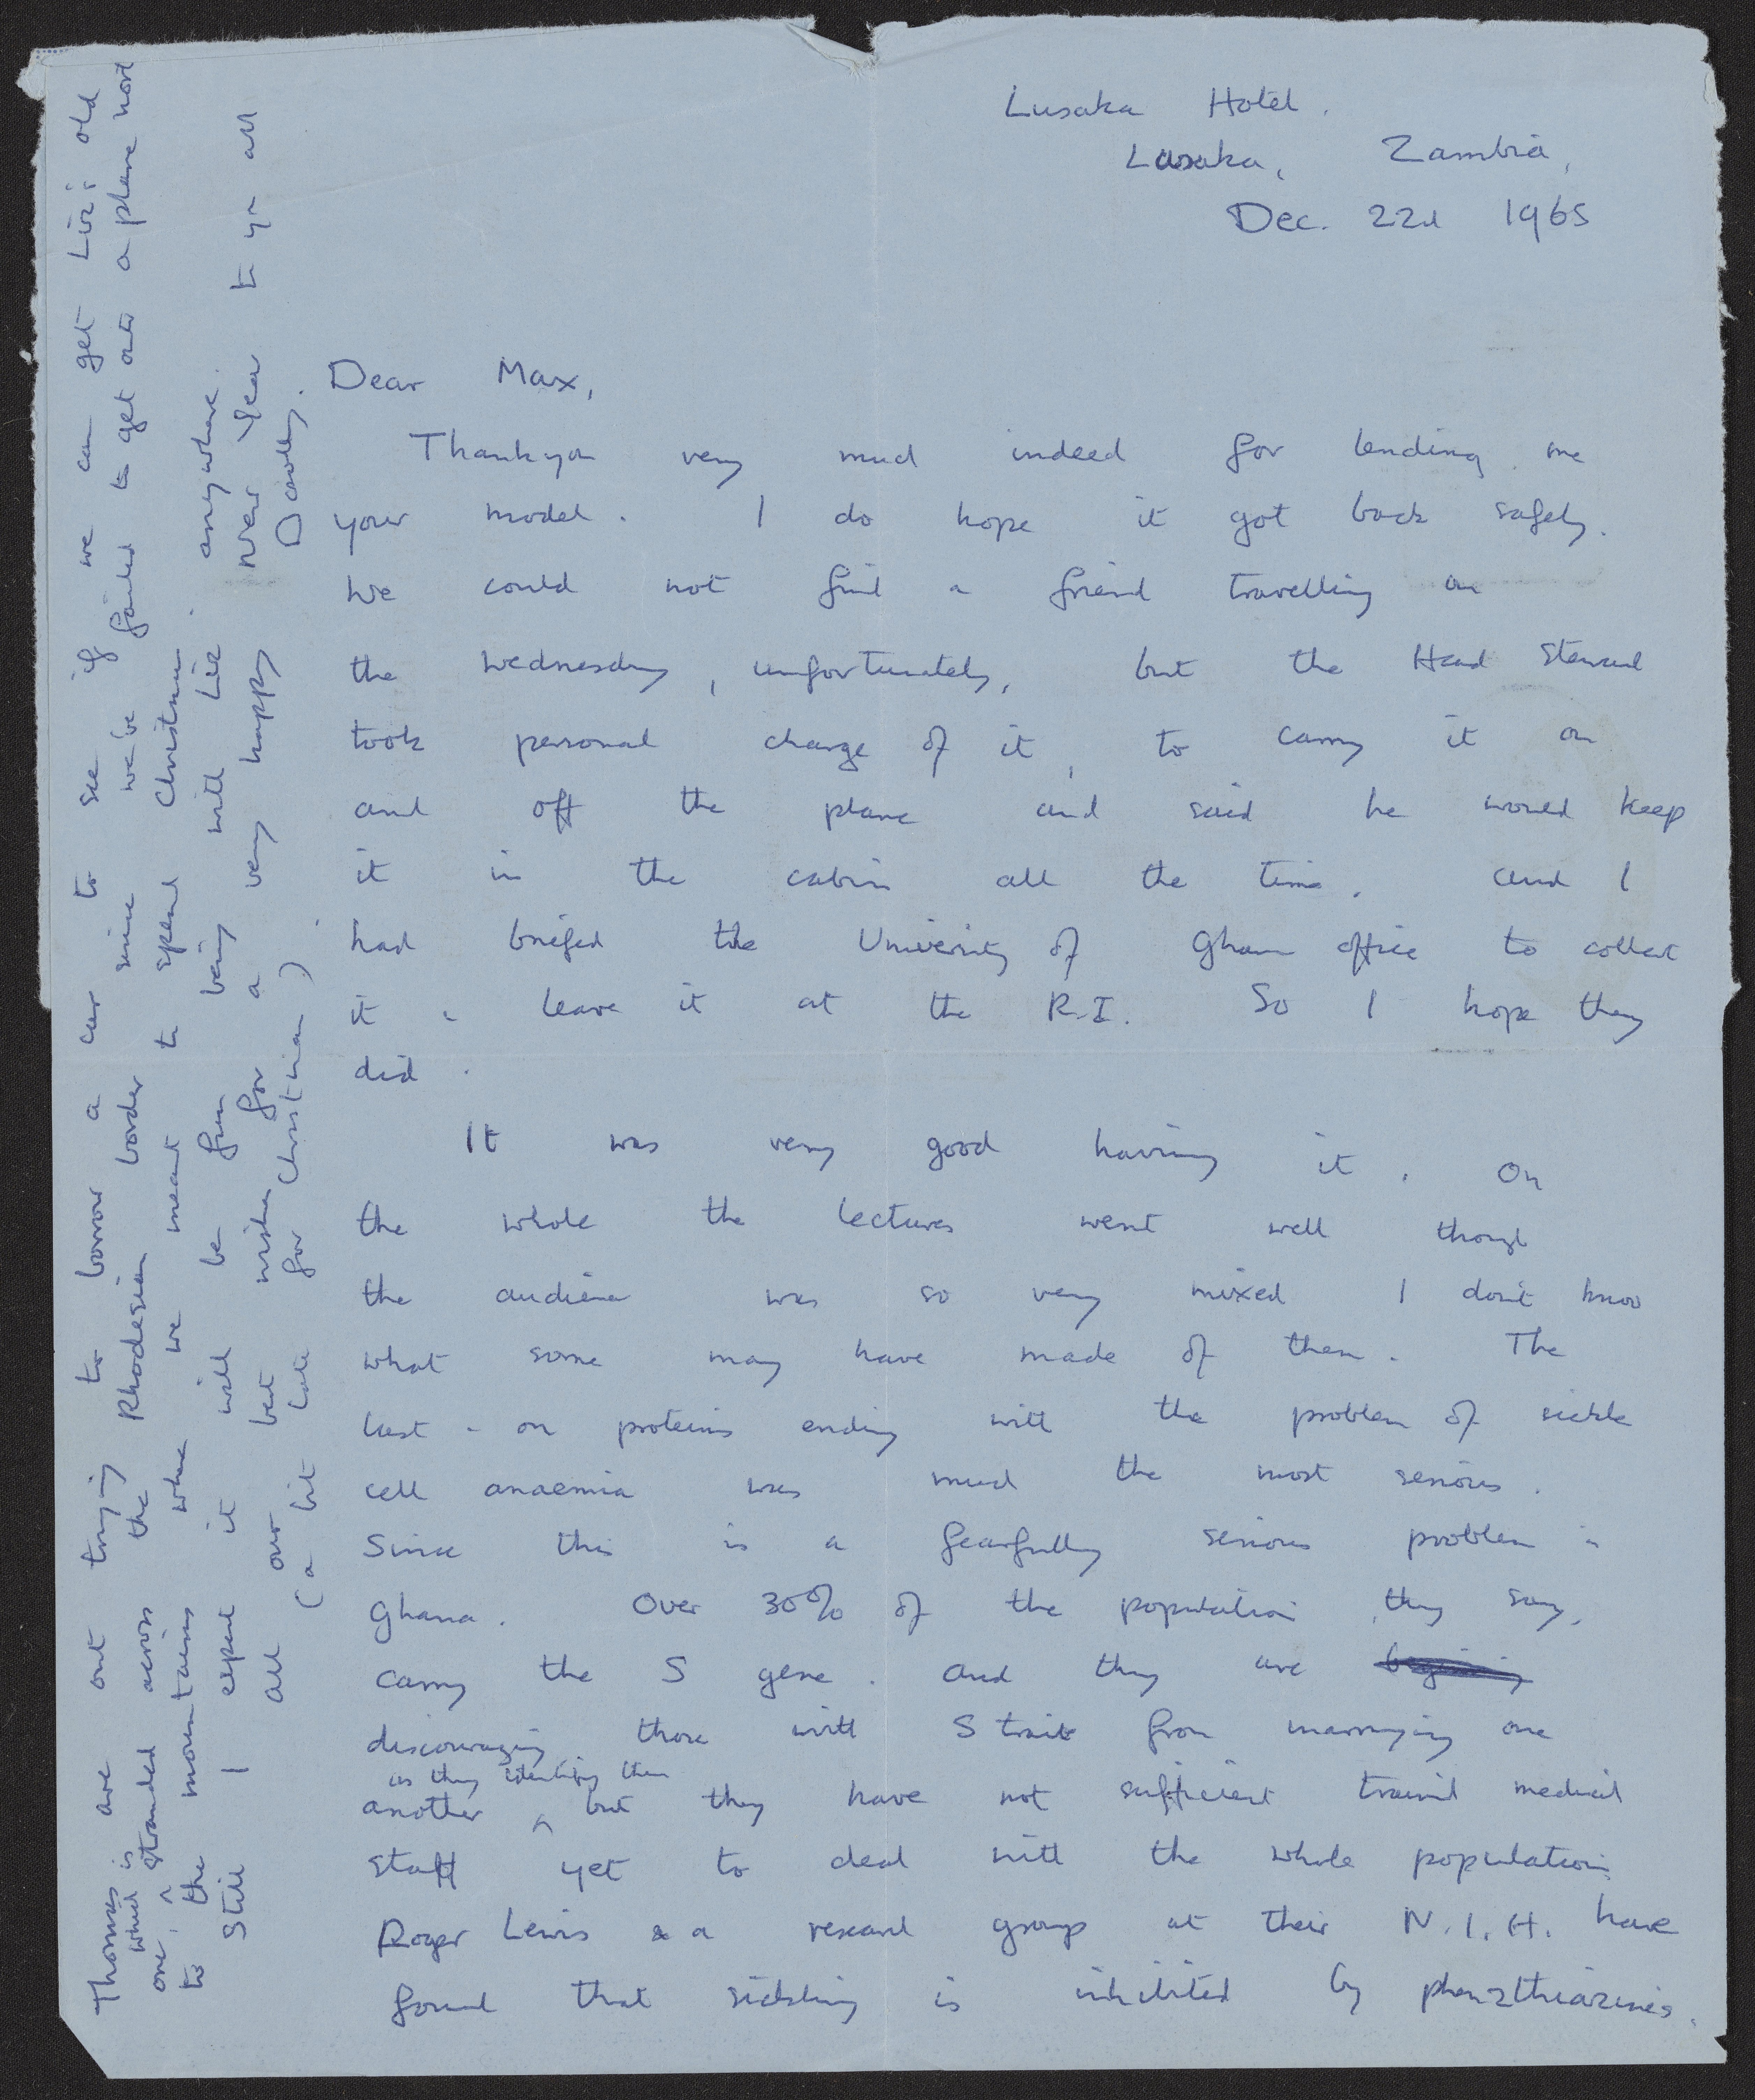 Lusaka Hotel.
Lusaka, Zambia,
Dec. 22d 1965
Dear Max,
Thankyou very much indeed for lending me
your model. I do hope it got back safely.
We could not find a friend travelling on
the Wednesday, unfortunately, but the Head Steward
took personal charge of it, to carry it on
and off the plane and said he would keep
it in the cabin all the time. And I
had briefed the University of Ghana office to collect
it & leave it at the R.I. So I hope they
did.
It was very good having it. On
the whole the lectures went well though
the audience was so very mixed I don't know
what some may have made of them. The
last - on proteins ending with the problem of sickle
cell anaemia was much the most serious.
Since this is a fearfully serious problem in
Ghana. Over 30% of the population, they say,
carry the S gene. And they are
discouraging those with S trait from marrying one
as they identify them
another ^ but they have not sufficient trained medical
staff yet to deal with the whole population
Roger Lewis & a research group at their N.I.H. have
found that sickling is inhibited by phenothiazines.
Thomas are out trying to borrow a car to see if we can get Liz's old
which is
one, ^ stranded across the Rhodesian border since we've failed to get onto a plane north
to the mountains where we meant to spend Christmas.
Still I expect it will be fun being with Liz anywhere.
All our best wishes for a very happy New Year to yr all
(a bit late for Christmas) Dorothy.